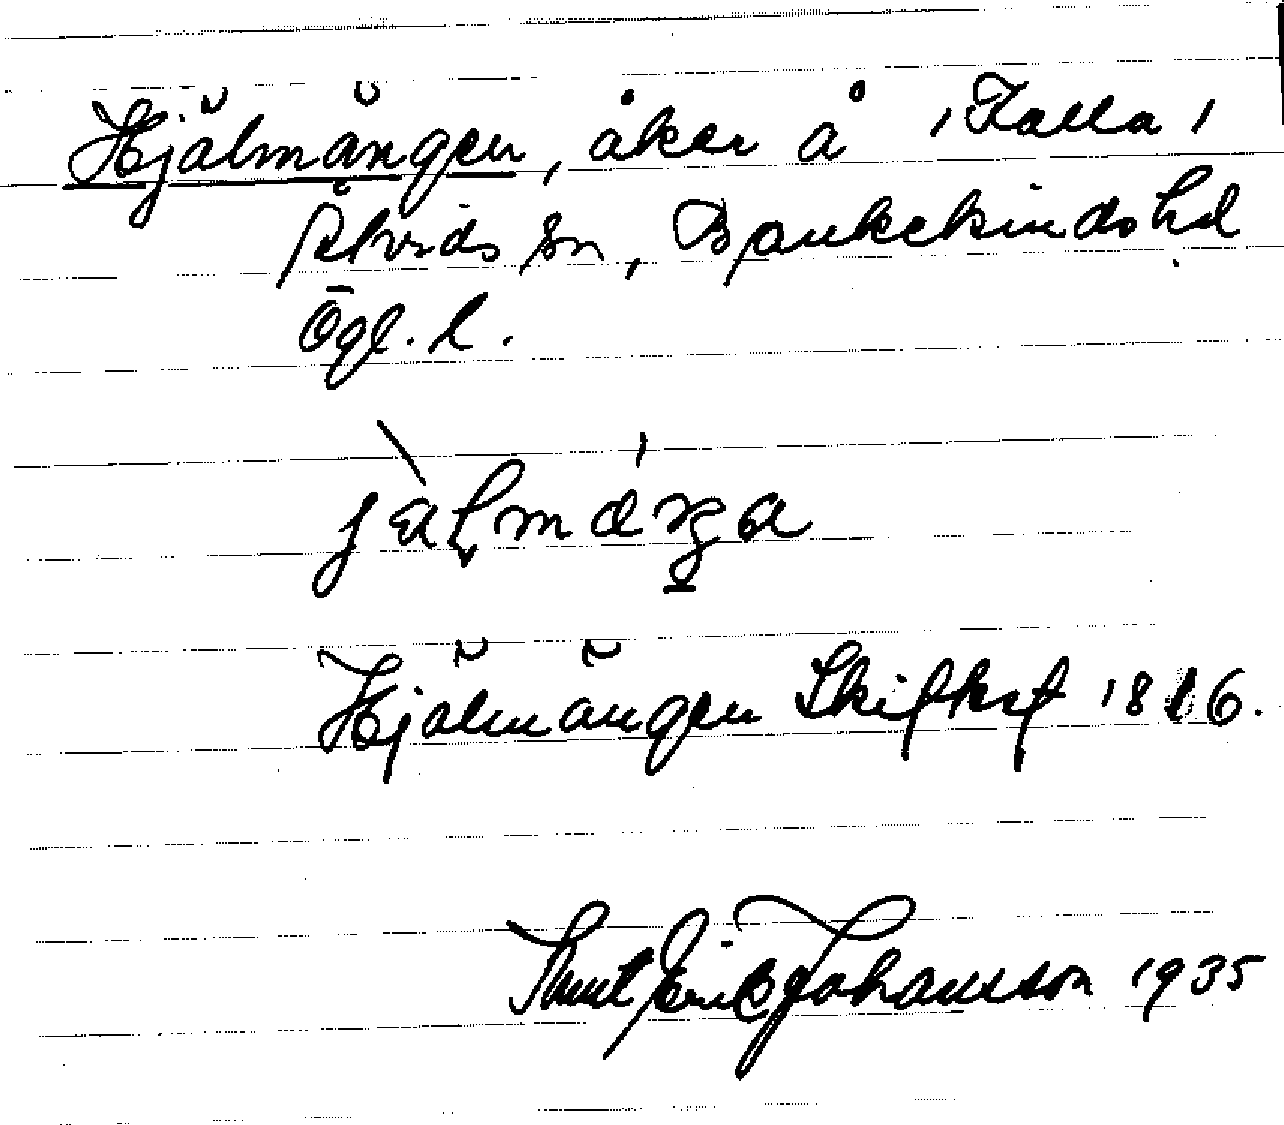 Hjälmängen, åker å 'Kalla'
Åtvids sn, Bankekinds hd
Ögl. l.
Hjälmängen Skifteskf 1816.
Knut Erik Johansson 1935